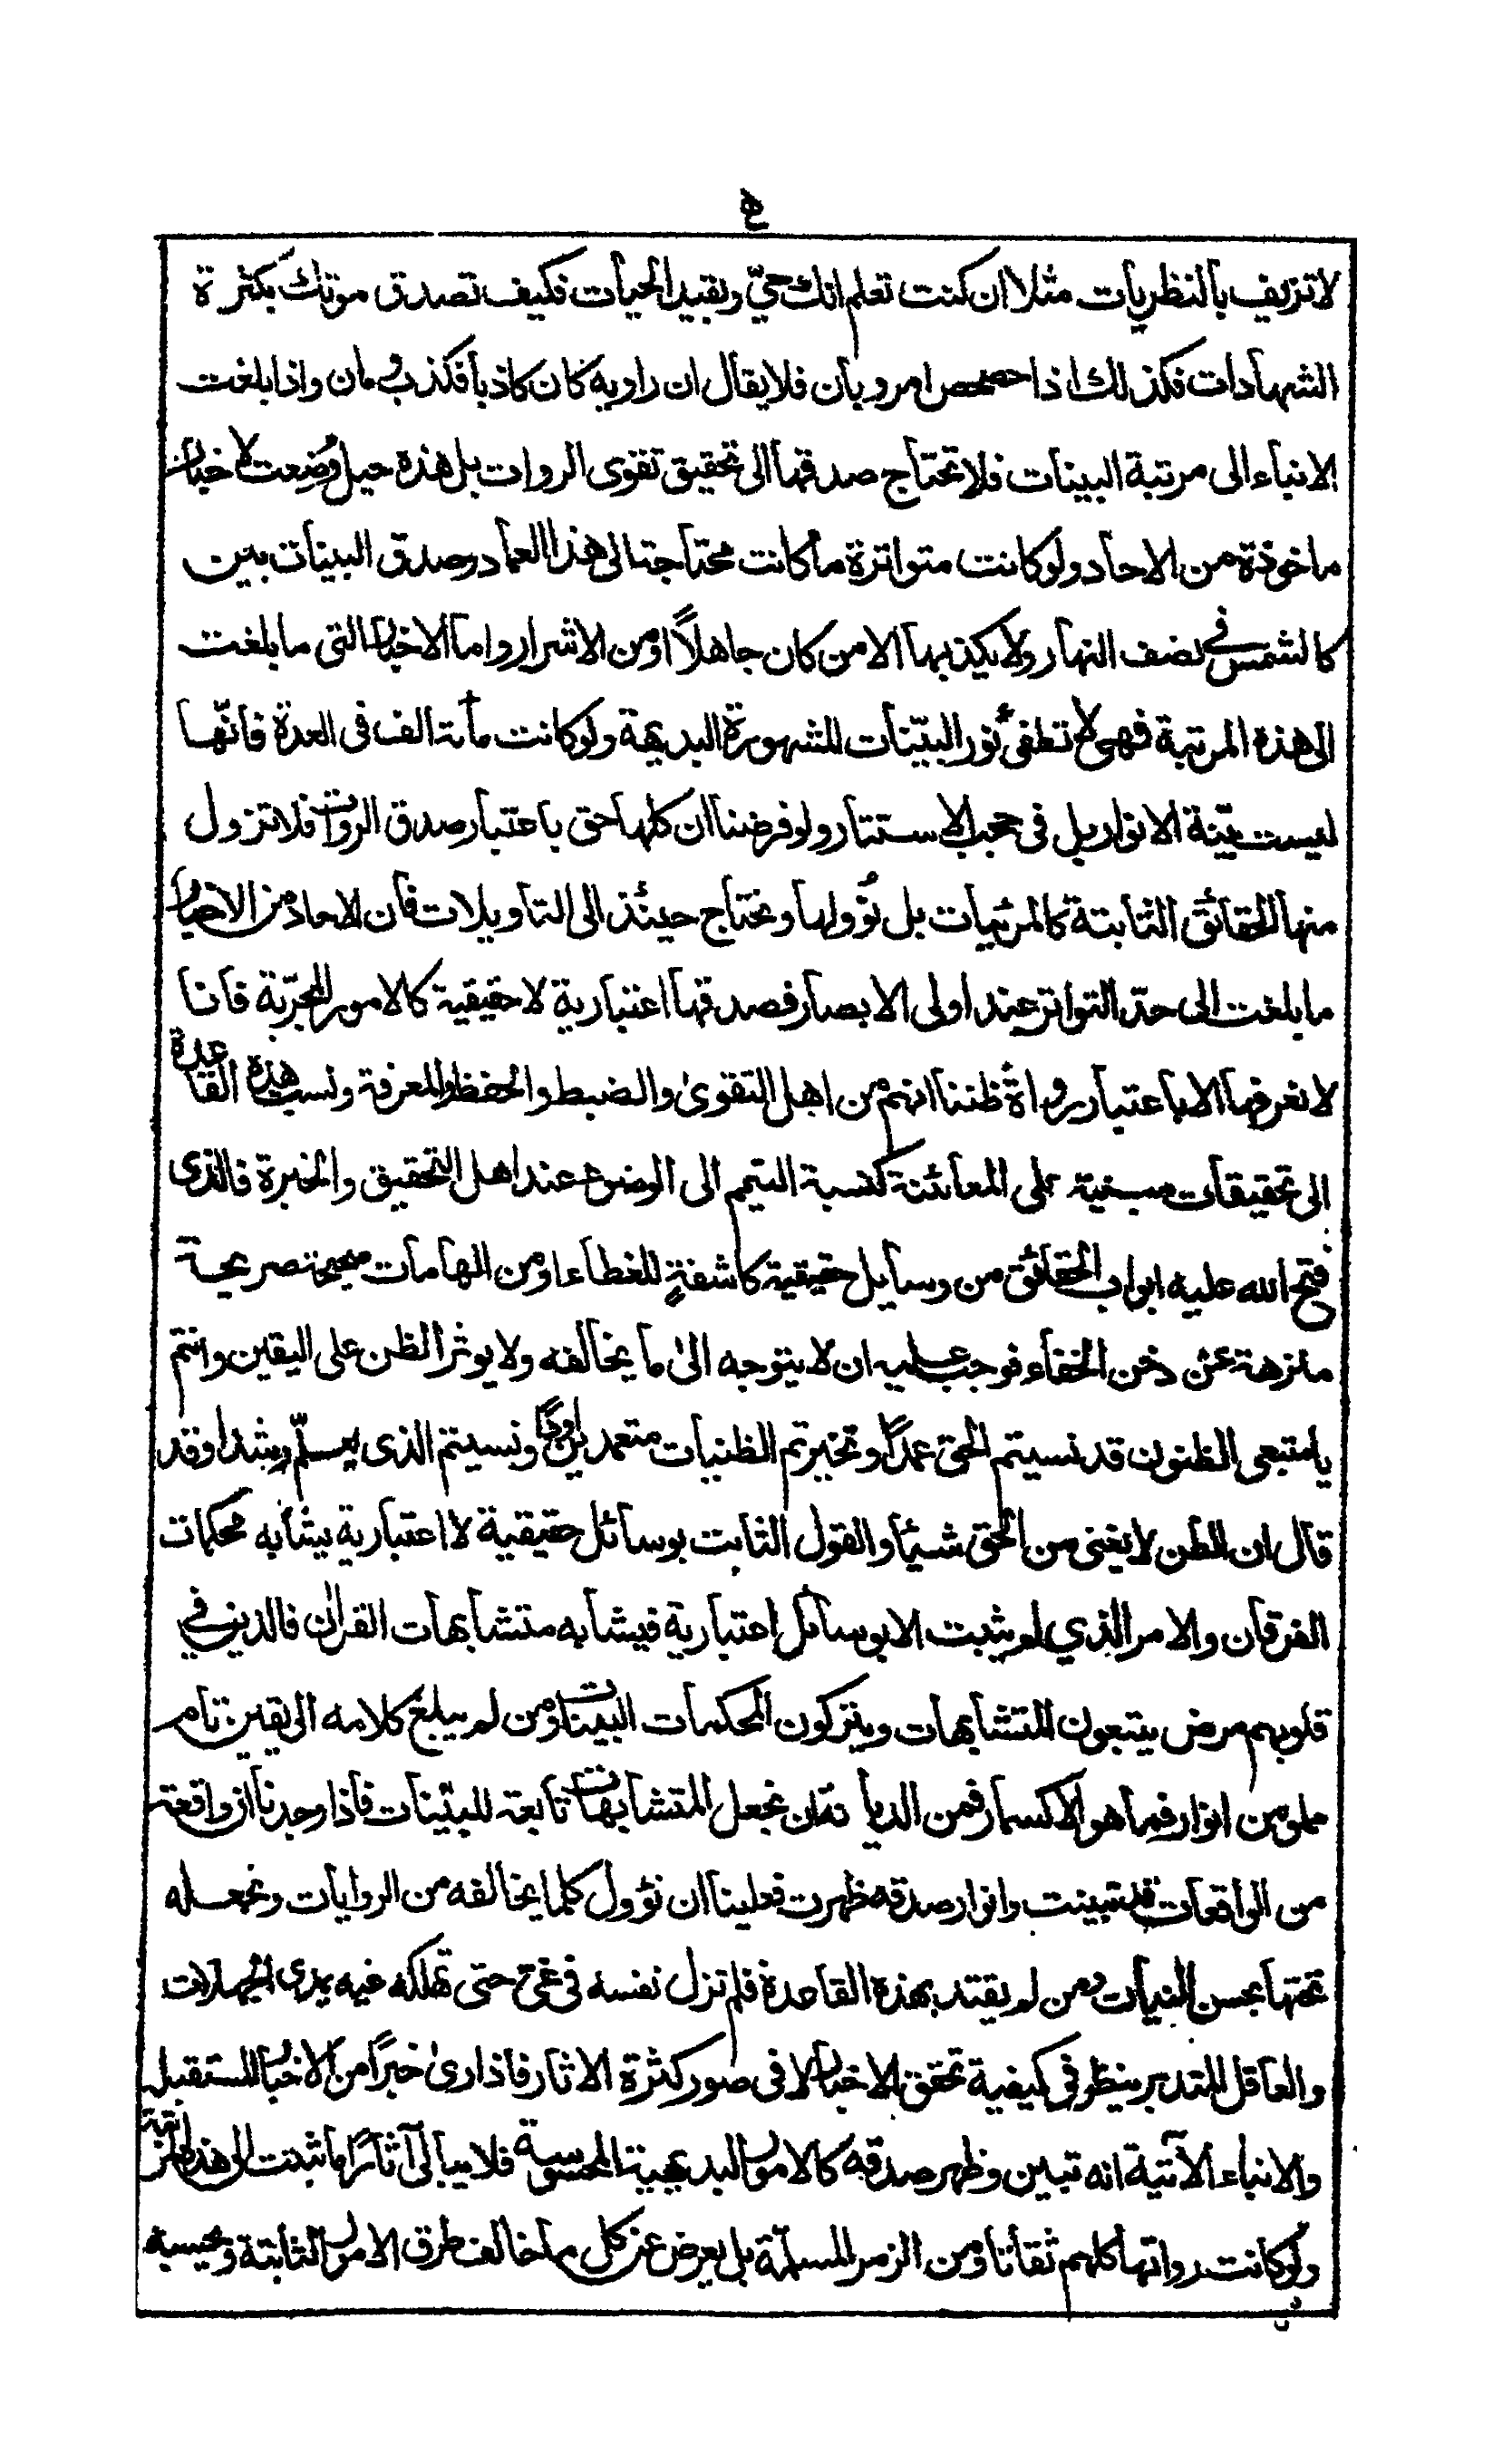 لا تزيف بالنظريات مثلا ان كنت تعلم انك حيّ وبقيد الحيات فكيف تصدق موتك بكثرة
الشهادات فكذلك اذا حصحص امر وبان فلا يقال ان راويه كان كاذبا فكذب ومان واذا بلغت
الانباء الى مرتبة البينات فلا تحتاج صدقها الى تحقيق تقوى الروات بل هذه حيل وُضِعت لاخبار
ماخوذة من الاحاد ولو كانت متواترة ما كانت محتاجة الى هذا العماد وصدق البينات بين
كالشمس في نصف النهار ولا يكذبها الا من كان جاهلاً او من الاشرار واما الاخبار التي ما بلغت
الى هذه المرتبة فهى لا تطفئ نور البيّنات المشهورة البديهة ولو كانت مأئة الف فى العدة فانّها
ليست بيّنة الانوار بل فى حجب الاستتار ولو فرضنا ان كلها حق باعتبار صدق الروات فلا تزول
منها الحقائق الثابتة كالمرئيات بل نُؤولها ونحتاج حينئذ الى التاويلات فان الاحاد من الاخبار
ما بلغت الى حدّ التواتر عند اولى الابصار فصدقها اعتبارية لا حقيقية كالامور المجرّبة فانا
لا نعرفها الا باعتبار رواةٍ ظننا انهم من اهل التقوىٰ والضبط والحفظ والمعرفة ونسبة هذه القاعدة
الى تحقيقات مبنية على المعائنة كنسبة التيمم الى الوضوء عند اهل التحقيق والخبرة فالذى
فتح الله عليه ابواب الحقائق من وسايل حقيقية كاشفةٍ للغطاء او من الهامات صحيحة صريحة
منزهة عن دخن الخفاء فوجب عليه ان لا يتوجه الىٰ ما يخالفه ولا يوثر الظن على اليقين وانتم
يا متبعى الظنون قد نسيتم الحق عمدًا وتخيرتم الظنيات متعمدين ونسيتم الذى يسلّم رشدا وقد
قال ان الظن لا يغنى من الحق شيئا والقول الثابت بوسائل حقيقية لا اعتبارية يشابه محكمات
الفرقان والامر الذي لم يثبت الا بوسائل اعتبارية فيشابه متشابهات القراٰن فالذين في
قلوبهم مرض يتبعون المتشابهات ويتركون المحكمات البينات ومن لم يبلغ كلامه الى يقين تام
مملو من انوار فما هو الا كسمار فمن الديانة ان نجعل المتشابهات تابعة للبيّنات فاذا وجدنا ان واقعة
من الواقعات قد تبينت وانوار صدقه ظهرت فعلينا ان نؤول كلما يخالفه من الروايات ونجعله
تحتها بحسن النيات ومن لم يقتد بهذه القاعدة فلم تزل نفسه فى غيّ حتى تهلكه غيه بمدى الجهلات
والعاقل المتدبر ينظر في كيفية تحقق الاخبار لا فى صور كثرة الاثار فاذا رىٰ خبرًا من الاخبار المستقبل
والانباء الآتية انه تبين وظهر صدقه كالامور البديهية المحسوسة فلا يبالي آثارًا ما ثبتت الى هذه المرتبة
ولو كانت رواتها كلهم ثقاتا ومن الزمر المسلمة بل يعرض عن كل ما خالف طرق الامور الثابتة ويحسبه